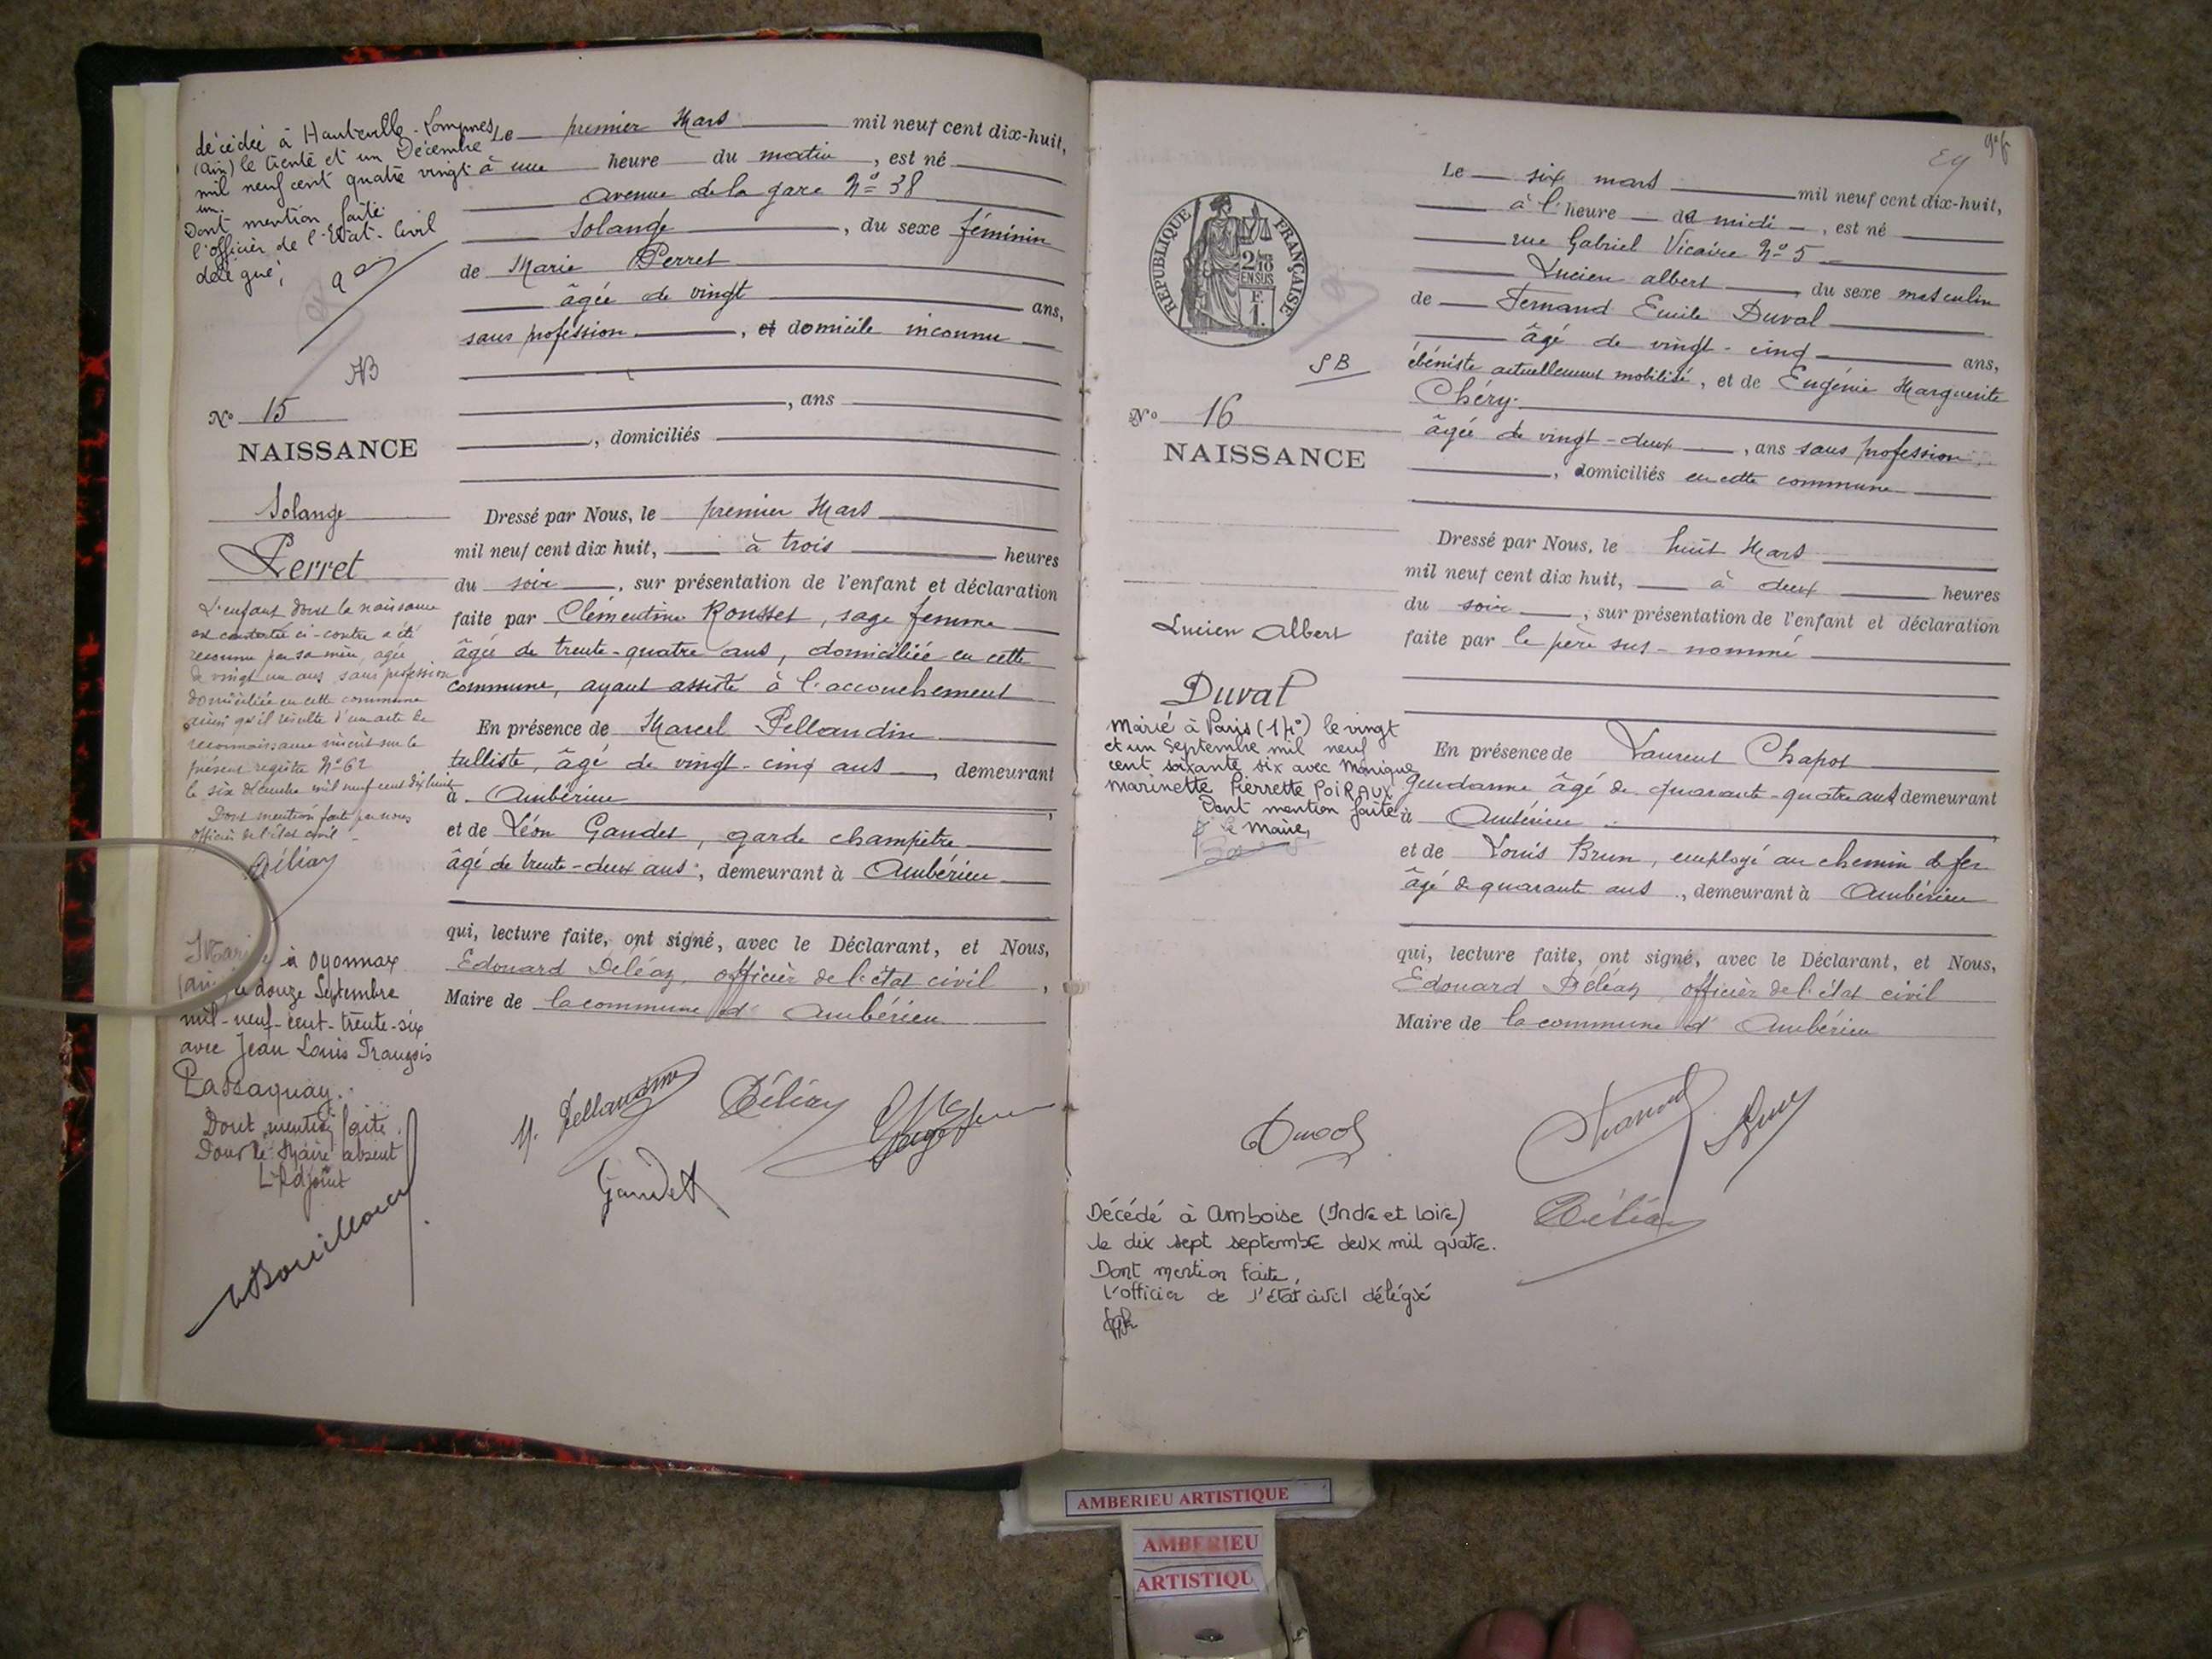 décédée à Hauteville-Lompnes
(Ain) le trente et un Décembre
mil neuf cent quatre vingt
un.
Dont mention faite
l'officier de l'Etat-Civil
délégué,
N° 15
NAISSANCE
Solange
Perret
L'enfant dont la naissance
est constatée ci-contre a été
reconnu par sa mère, agée
de vingt un ans sans profession
domiciliée en cette commune
ainsi qu'il résulte d'un acte de
reconnaissance inscrit sur le
présent registre N° 62
le six décembre mil neuf cent dix huit
Dont mention faite par nous
officier de l'état civil
Déléaz
à Oyonnax
le douze Septembre
mil-neuf-cent-trente-six
avec Jean Louis François
Passaquay.
Dont mention faite.
Pour le Maire absent
L'Adjoint
Le premier Mars mil neuf cent dix-huit,
à une heure du matin, est né
avenue de la gare N° 38
Solange, du sexe féminin
de Marie Perret
âgée de vingt ans,
sans profession, et domicile inconnu
, ans
, domiciliés
Dressé par Nous, le premier Mars
mil neuf cent dix huit, à trois heures
du soir, sur présentation de l'enfant et déclaration
faite par Clémentine Rousset, sage femme
âgée de trente-quatre ans, domiciliée en cette
commune, ayant assisté à l'accouchement
En présence de Marcel Pellandin
tulliste, âgé de vingt-cinq ans, demeurant
à Ambérieu
et de Léon Gaudet, garde champêtre
âgé de trente-deux ans, demeurant à Ambérieu
qui, lecture faite, ont signé, avec le Déclarant, et Nous,
Edouard Déléaz, officier de l'état civil,
Maire de la commune d'Ambérieu
M. Pellandin
Déléaz
Gaudet
REPUBLIQUE FRANÇAISE
SB
N° 16
NAISSANCE
Lucien Albert
Duval
Marié à Paris (14°) le vingt
et un Septembre mil neuf
cent soixante six avec Monique
Marinette Pierrette POIRAUX
Dont mention faite
Le Maire,
Le six mars mil neuf cent dix-huit,
à l'heure de midi, est né
rue Gabriel Vicaire N° 5
Lucien albert, du sexe masculin
de Fernand Emile Duval
âgé de vingt-cinq ans,
ébéniste actuellement mobilisé, et de Eugénie Marguerite
Chéry
âgée de vingt-deux, ans sans profession,
, domiciliés en cette commune
Dressé par Nous, le huit Mars
mil neuf cent dix huit, à deux heures
du soir, sur présentation de l'enfant et déclaration
faite par le père sus-nommé
En présence de Laurent Chapot
gendarme âgé de quarante-quatre ans demeurant
à Ambérieu
et de Louis Brun, employé au chemin de fer
âgé de quarante ans, demeurant à Ambérieu
qui, lecture faite, ont signé, avec le Déclarant, et Nous,
Edouard Déléaz officier de l'état civil
Maire de la commune d'Ambérieu
Duval
Brun
Déléaz
Décédé à Amboise (Indre et Loire)
le dix sept septembre deux mil quatre.
Dont mention faite,
L'officier de l'état civil délégué
AMBERIEU ARTISTIQUE
AMBERIEU
ARTISTIQU